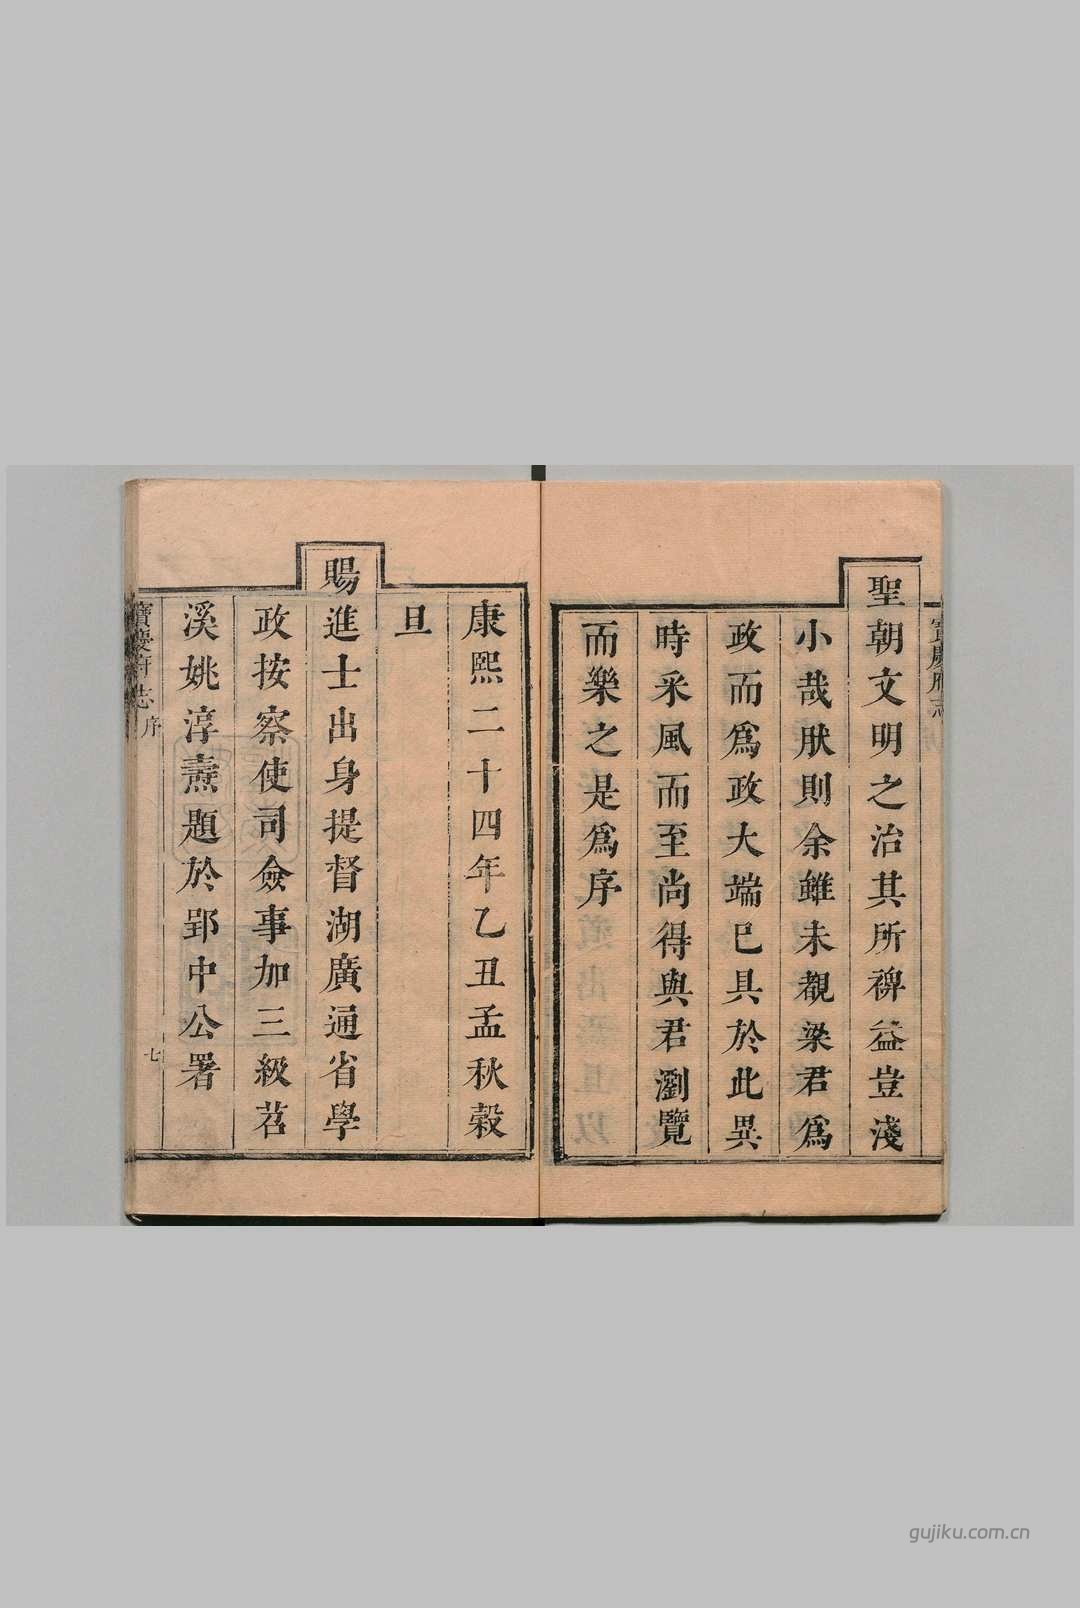 聖朝文明之治其所裨益豈淺
小哉肰則余雖未覩梁君爲
政而爲政大端已具於此異
時采風而至尚得與君瀏覽
而樂之是爲序
康熙二十四年乙丑孟秋穀
旦
賜進士出身提督湖廣通省學
政按察使司僉事加三級苕
溪姚淳燾題於郢中公署
寶慶府志 序
七
寶慶府志
gujiku.com.cn